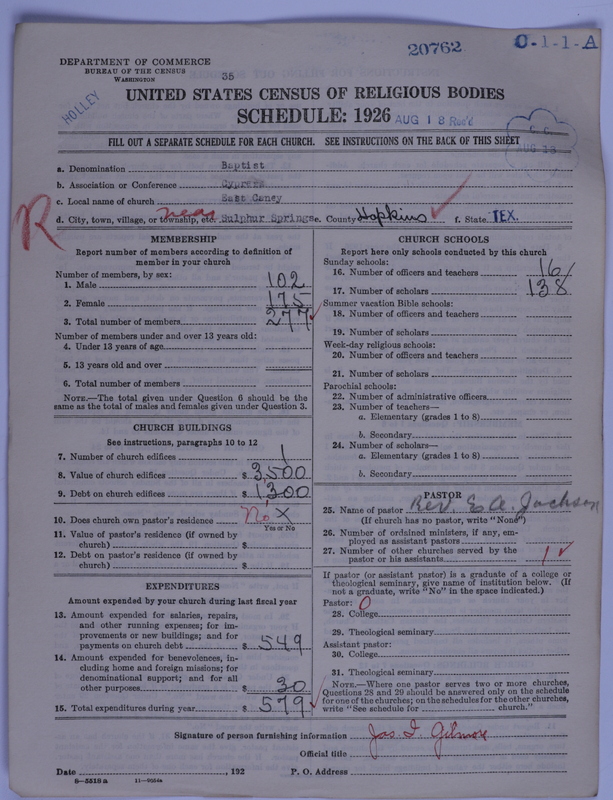 20762
O-1-1-A
DEPARTMENT OF COMMERCE
BUREAU OF THE CENSUS
WASHINGTON
35
HOLLEY
UNITED STATES CENSUS OF RELIGIOUS BODIES
SCHEDULE: 1926 AUG 18 Rec'd
FILL OUT A SEPARATE SCHEDULE FOR EACH CHURCH. SEE INSTRUCTIONS ON THE BACK OF THIS SHEET
a. Denomination Baptist
b. Association or Conference Cypress
c. Local name of church East Caney
R
d. City, town, village, or township, etc. near Sulphur Springs e. County Hopkins f. State TEX.
MEMBERSHIP
Report number of members according to definition of
member in your church
Number of members, by sex:
1. Male 102
2. Female 175
3. Total number of members 277
Number of members under and over 13 years old:
4. Under 13 years of age
5. 13 years old and over
6. Total number of members
NOTE.—The total given under Question 6 should be
same as the total of males and females given under Question 3.
CHURCH BUILDINGS
See instructions, paragraphs 10 to 12
7. Number of church edifices 1
8. Value of church edifices $ 3,500
9. Debt on church edifices $ 1,300
10. Does church own pastor's residence No X
Yes or No
11. Value of pastor's residence (if owned by
church) $
12. Debt on pastor's residence (if owned by
church) $
EXPENDITURES
Amount expended by your church during last fiscal year
13. Amount expended for salaries, repairs,
and other running expenses; for im-
provements or new buildings; and for
payments on church debt $ 549
14. Amount expended for benevolences, in-
cluding home and foreign missions; for
denominational support; and for all
other purposes $ 30
15. Total expenditures during year $ 579
CHURCH SCHOOLS
Report here only schools conducted by this church
Sunday schools:
16. Number of officers and teachers 16
17. Number of scholars 138
Summer vacation Bible schools:
18. Number of officers and teachers
19. Number of scholars
Week-day religious schools:
20. Number of officers and teachers
21. Number of scholars
Parochial schools:
22. Number of administrative officers
23. Number of teachers—
a. Elementary (grades 1 to 8)
b. Secondary
24. Number of scholars—
a. Elementary (grades 1 to 8)
b. Secondary
PASTOR
25. Name of pastor Rev. E. A. Jackson
(If church has no pastor, write "None")
26. Number of ordained ministers, if any, em-
ployed as assistant pastors
27. Number of other churches served by the
pastor or his assistants 1
If pastor (or assistant pastor) is a graduate of a college or
theological seminary, give name of institution below. (If
not a graduate, write "No" in the space indicated.)
Pastor: 0
28. College
29. Theological seminary
Assistant pastor:
30. College
31. Theological seminary
NOTE.—Where one pastor serves two or more churches,
Questions 28 and 29 should be answered only on the schedule
for one of the churches; on the schedules for the other churches,
write "See schedule for church."
Signature of person furnishing information Jas. I. Gilmore
Official title
Date , 192 P. O. Address
8-5518a 11-9554a